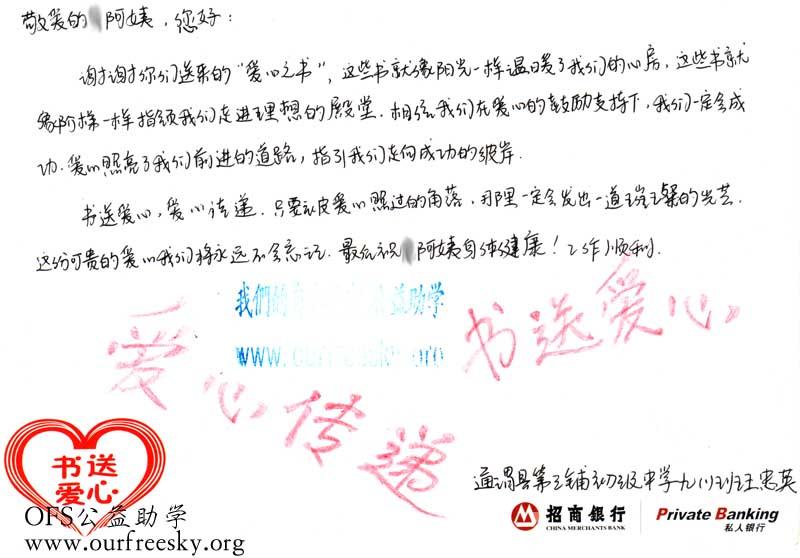 敬爱的 阿姨，您好：
谢谢你们送来的“爱心之书”，这些书就像阳光一样温暖了我们的心房，这些书就
像阶梯一样指领我们走进理想的殿堂．相信我们在爱心的鼓励支持下，我们一定会成
功．爱心照亮了我们前进的道路，指引我们走向成功的彼岸．
书送爱心，爱心传递．只要被爱心照过的角落，那里一定会发出一道璀璨的光芒．
这份可贵的爱心我们将永远不会忘记．最后祝 阿姨身体健康！工作顺利．
我們的 公益助学
www.ourfreesky.org
书送爱心
爱心传递
书送
爱心
OFS公益助学
www.ourfreesky.org
通渭县第三铺初级中学九(1)班王忠英
招商银行
CHINA MERCHANTS BANK
Private Banking
私人银行